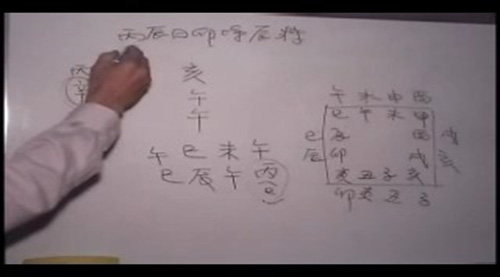 丙辰日卯時辰將
丙
辛
亥
午
午
午巳未午
巳辰午丙
巳
午未申酉
巳午未申
巳辰酉戌
辰卯戌亥
亥丑子亥
卯亥丑子